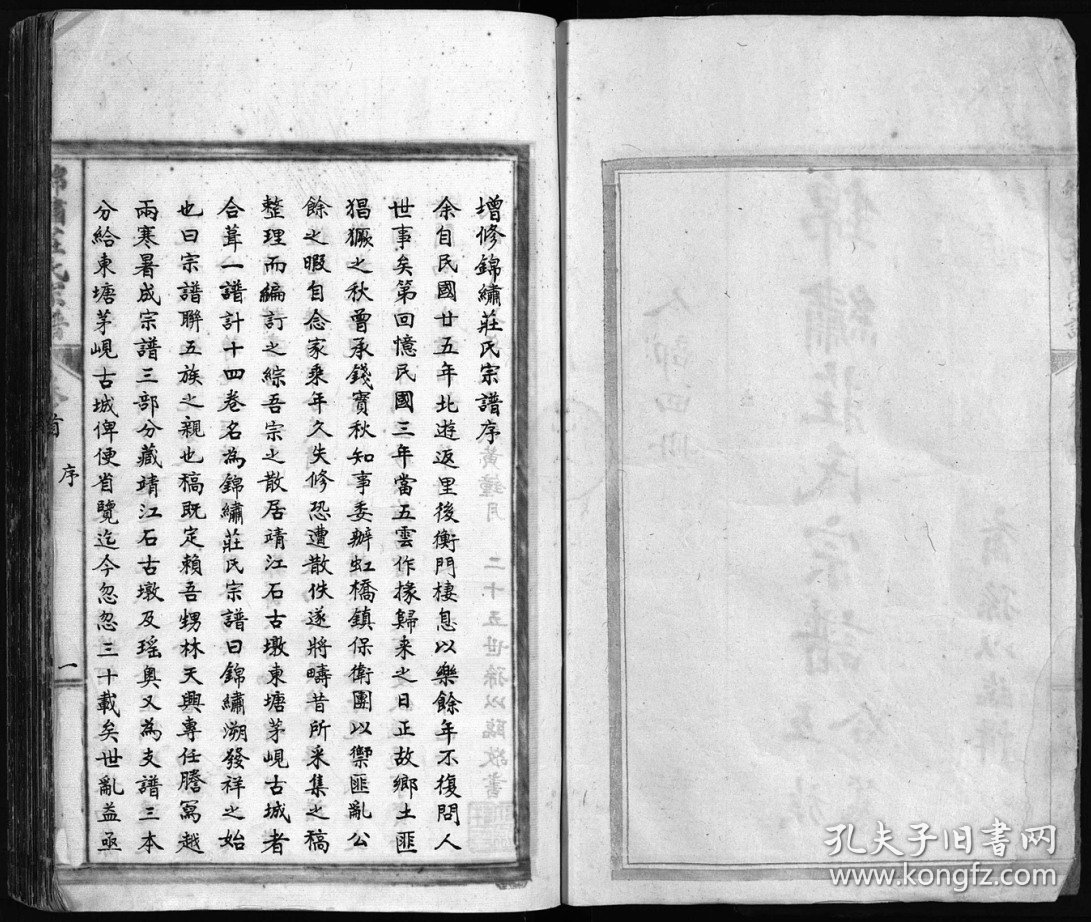 增修錦繡莊氏宗譜序
余自民國廿五年北遊返里後衡門棲息以樂餘年不復問人
世事矣第回憶民國三年當五雲作掾歸來之日正故鄉土匪
猖獗之秋曾承錢寶秋知事委辦虹橋鎮保衛團以禦匪亂公
餘之暇自念家乘年久失修恐遭散佚遂將疇昔所采集之稿
整理而編訂之綜吾宗之散居靖江石古墩東塘茅峴古城者
合葺一譜計十四卷名為錦繡莊氏宗譜曰錦繡溯發祥之始
也曰宗譜聯五族之親也稿既定賴吾甥林天興專任謄寫越
兩寒暑成宗譜三部分藏靖江石古墩及瑶奥又為支譜三本
分給東塘茅峴古城俾便省覽迄今忽忽三十載矣世亂益亟
錦繡莊氏宗譜
首
序
一
黃鐘月
二十五世孫以臨敬書
孔夫子旧書网
www.kongfz.com